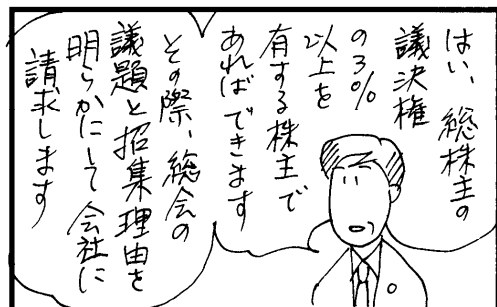 はい、総株主の
議決権
の3%
以上を
有する株主で
あればできます
その際、総会の
議題と招集理由を
明らかにして会社に
請求します